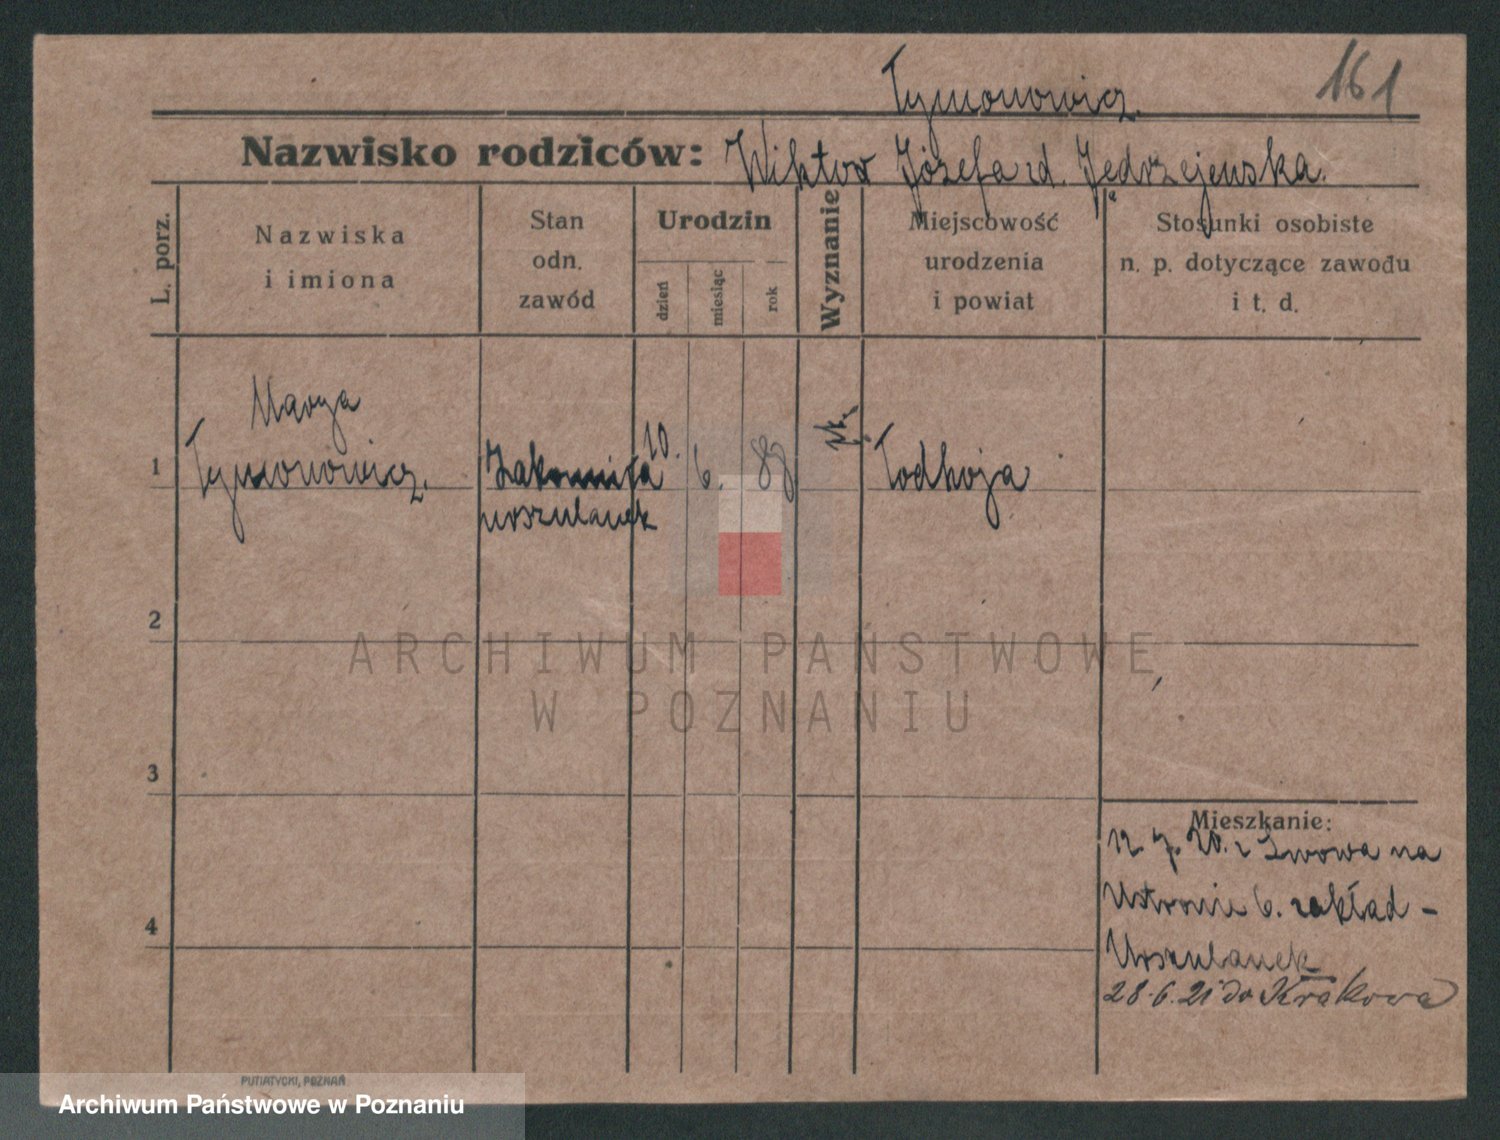 Tymonowicz.
161
Nazwisko rodziców: Wiktor Józefa zd. Jędrzejewska.
L. porz.
Nazwiska
i imiona
Stan
odn.
zawód
Urodzin
dzień
miesiąc
rok
Wyznanie
Miejscowość
urodzenia
i powiat
Stosunki osobiste
n. p. dotyczące zawodu
i t. d.
Marya
1 Tymonowicz. Zakonnica 10. 6. Todhoja
urszulanek
2
ARCHIWUM PAŃSTWOWE
W POZNANIU
3
Mieszkanie:
12. 7. 20. z Lwowa na
4 Ustronie 6. zakład -
Urszulanek
28.6.21 do Krakowa
PUTIATYCKI, POZNAŃ
Archiwum Państwowe w Poznaniu